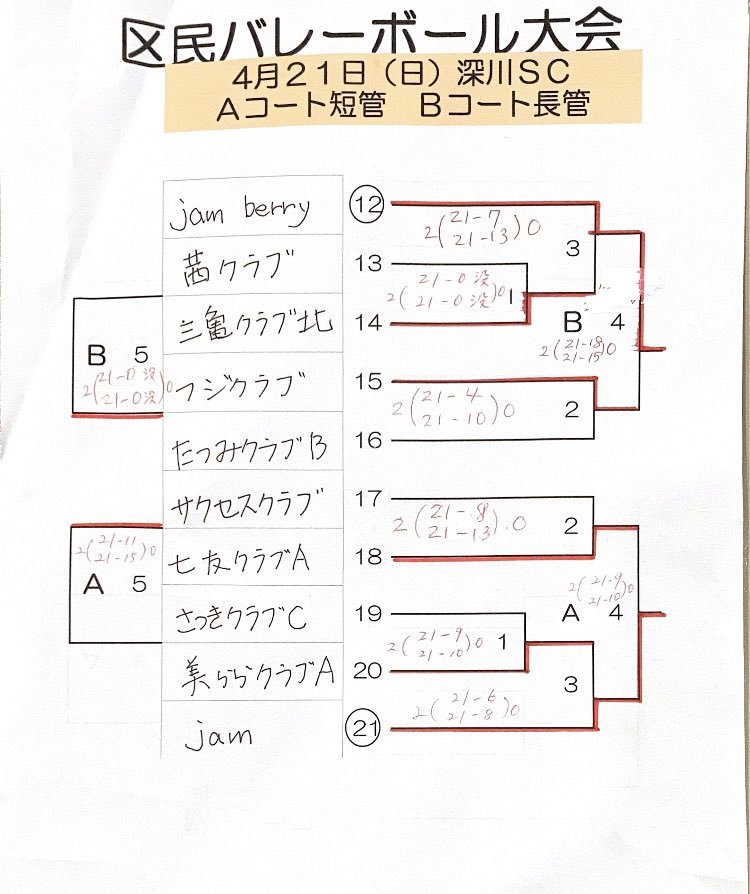 区民バレーボール大会
4月21日（日）深川SC
Aコート短管　Bコート長管
jam berry ⑫
2(21-7 21-13)0
3
茜クラブ 13
2(21-0没 21-0没)0 1
三亀クラブ北 14
B 4
2(21-18 21-15)0
B 5
2(21-0没 21-0没)0
フジクラブ 15
2(21-4 21-10)0 2
たつみクラブB 16
サクセスクラブ 17
2(21-8 21-13)0 2
A 5
2(21-11 21-15)0
七友クラブA 18
A 4
2(21-9 21-10)0
さつきクラブC 19
2(21-9 21-10)0 1
美ららクラブA 20
3
2(21-6 21-8)0
jam ㉑